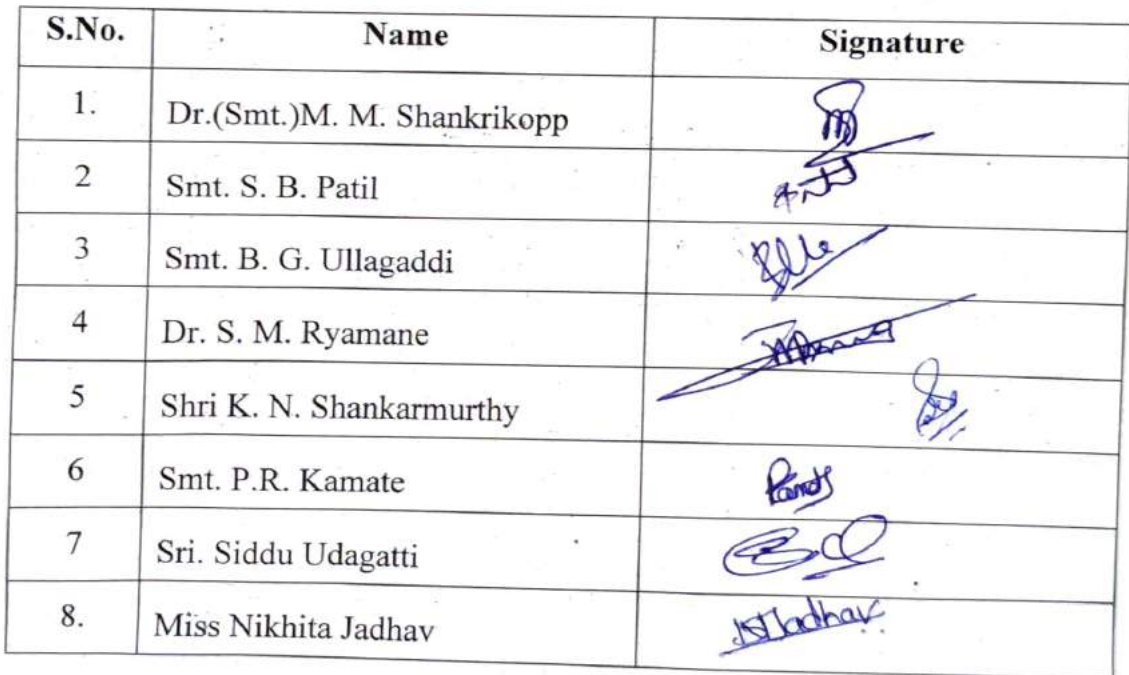 S.No. Name Signature
1. Dr.(Smt.)M. M. Shankrikopp
2 Smt. S. B. Patil
3 Smt. B. G. Ullagaddi
4 Dr. S. M. Ryamane
5 Shri K. N. Shankarmurthy
6 Smt. P.R. Kamate
7 Sri. Siddu Udagatti
8. Miss Nikhita Jadhav